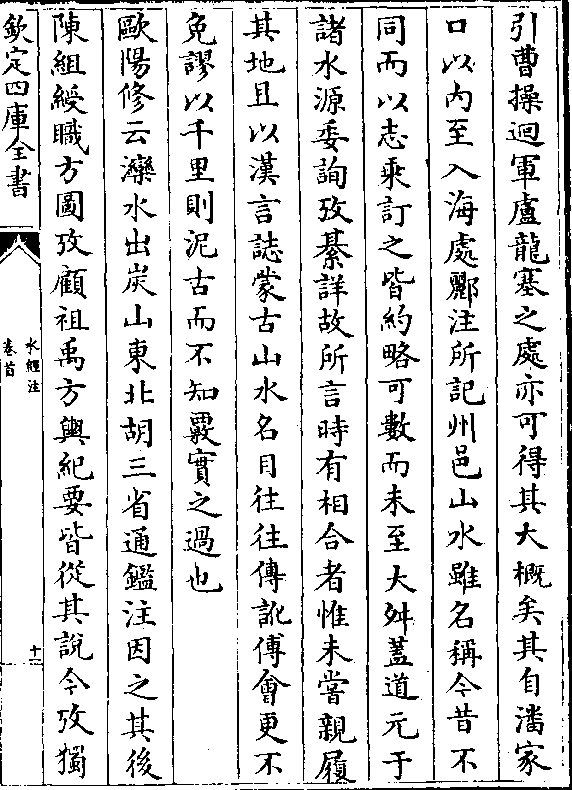 引曹操迴軍盧龍塞之處亦可得其大概矣其自潘家
口以内至入海處酈注所記州邑山水雖名稱今昔不
同而以志乘訂之皆約略可數而未至大舛蓋道元于
諸水源委詢攷綦詳故所言時有相合者惟未嘗親履
其地且以漢言誌蒙古山水名目往往傳訛傅會更不
免謬以千里則泥古而不知覈實之過也
歐陽修云灤水出炭山東北胡三省通鑑注因之其後
陳組綬職方圖攷顧祖禹方輿紀要皆從其說今攷獨
欽定四庫全書
水經注
卷首
十一